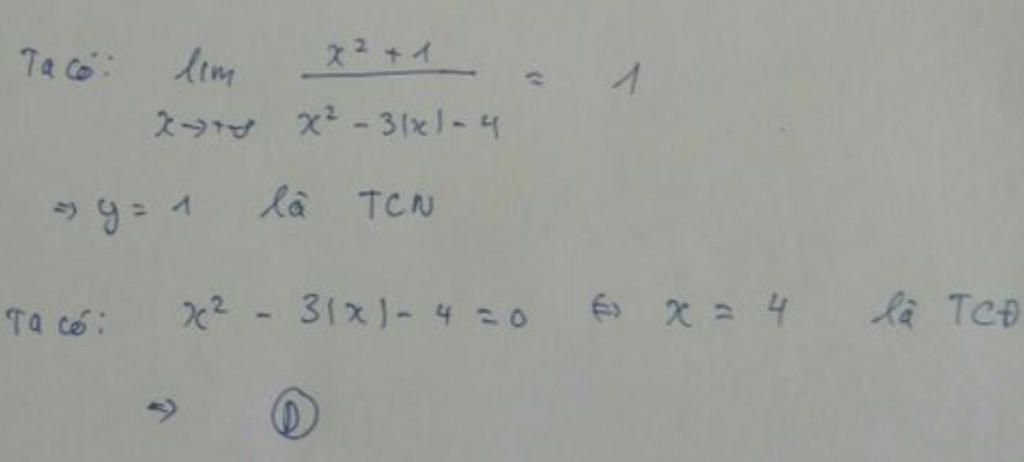 Ta có: lim x→+∞ (x² + 1)/(x² - 3|x| - 4) = 1
⇒ y = 1 là TCN
Ta có: x² - 3|x| - 4 = 0 ⇔ x = 4 là TCĐ
⇒ Ⓓ